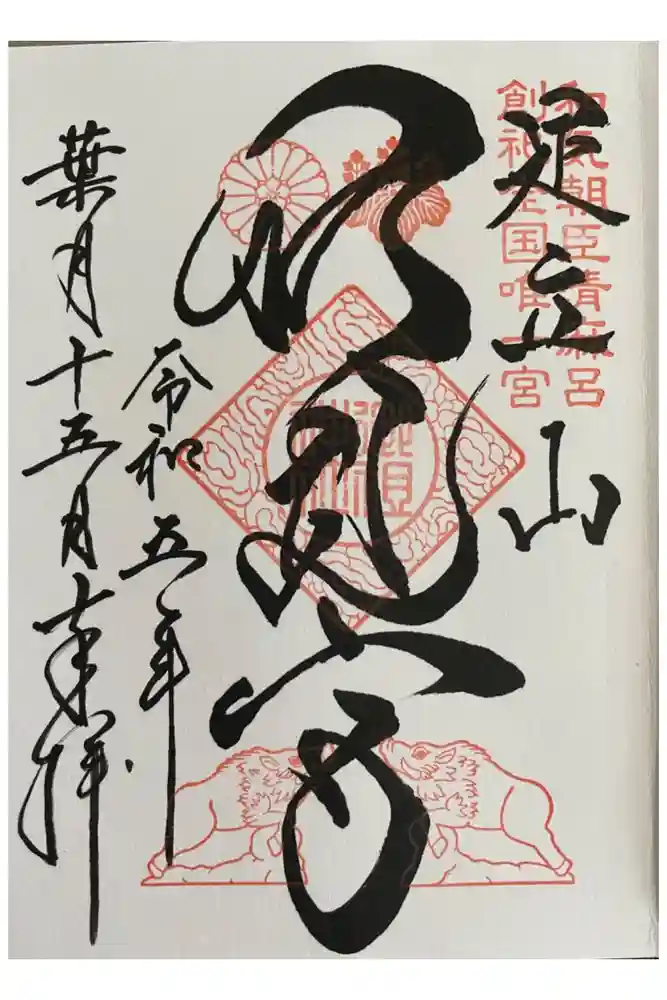 和気朝臣清麻呂
創祀全国唯一宮
足立山
妙見宮
令和五年
葉月十五日奉拝